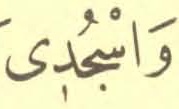 وَاسْجُدِى